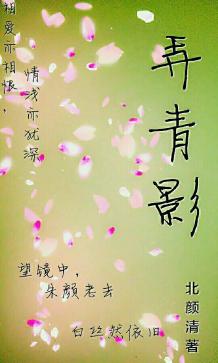 相爱亦相恨，
情浅亦犹深
弄青影
望镜中，
朱颜老去
白丝然依旧
北颜清著